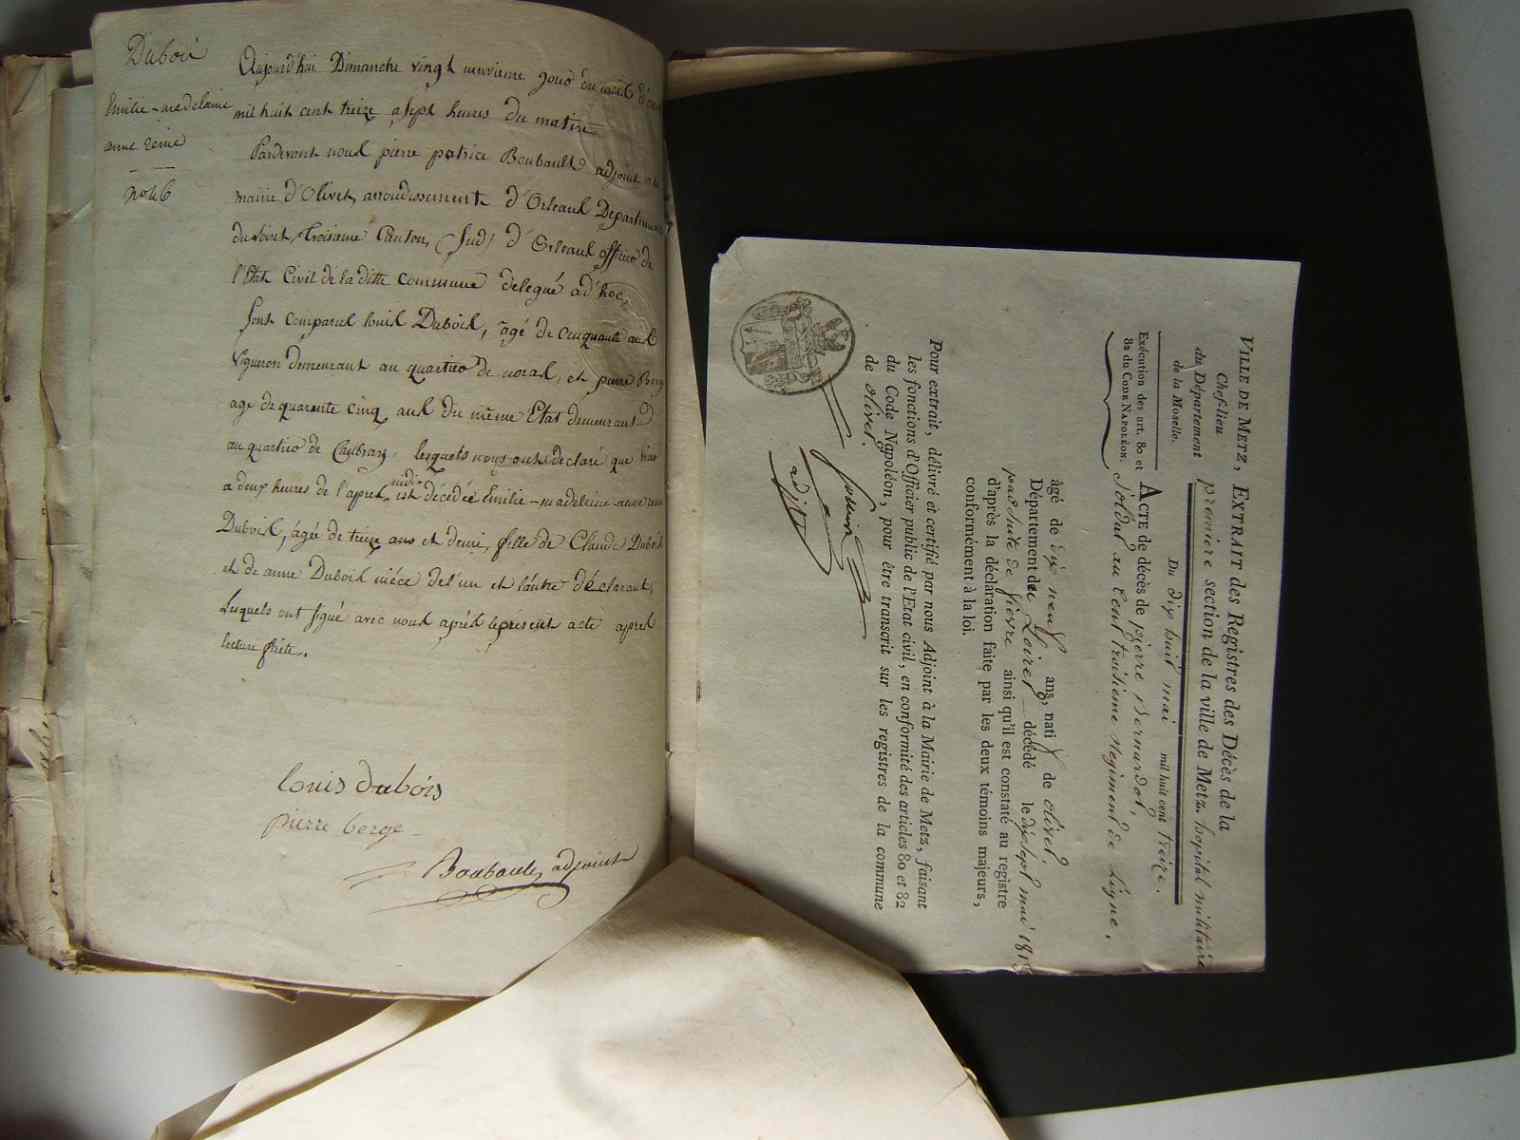 Dubois
Emilie-madelaine
anne reine
n° 46
Aujourd'hui Dimanche vingt neuvieme jour du mois
mil huit cent treize a sept heures du matin
Pardevant nous pierre patrice Boubault adjoint
mairie d'Olivet, arrondissement d'Orleans Departement
du Loiret, Troisieme Canton, (Sud) d'Orleans officier de
l'Etat Civil de la ditte commune delegué ad'hoc,
sont comparus louis Dubois, agé de cinquante ans
Vigneron demeurant au quartier de , et pierre
age de quarente cinq ans du même Etat demeurant
au quartier de lesquels nous ont declaré que hier
a deux heures de l'apres midi est décedée Emilie-madeleine anne reine
Dubois, âgée de treize ans et demi, fille de Claude Dubois
et de anne Dubois niéce de l'un et l'autre déclarant,
Lesquels ont signé avec nous après le présent acte apres
lecture faite.
louis dubois
pierre berge
Boubault adjoint
VILLE DE METZ,
Chef-lieu
du Département
de la Moselle.
Exécution des art. 80 et
82 du CODE NAPOLÉON.
EXTRAIT des Registres des Décès de la
premiere section de la ville de Metz. hopital militaire
Du dix huit mai mil huit cent treize.
ACTE de décès de pierre Bernardot,
Soldat au Cent troisième Regiment de Ligne,
âgé de dix neuf ans, natif de olivet,
Département du Loiret décédé le dix sept mai 1813
par suite de fievre ainsi qu'il est constaté au registre
d'après la déclaration faite par les deux témoins majeurs,
conformément à la loi.
Pour extrait, délivré et certifié par nous Adjoint à la Mairie de Metz, faisant
les fonctions d'Officier public de l'Etat civil, en conformité des articles 80 et 82
du Code Napoléon, pour être transcrit sur les registres de la commune
de olivet.
adjt